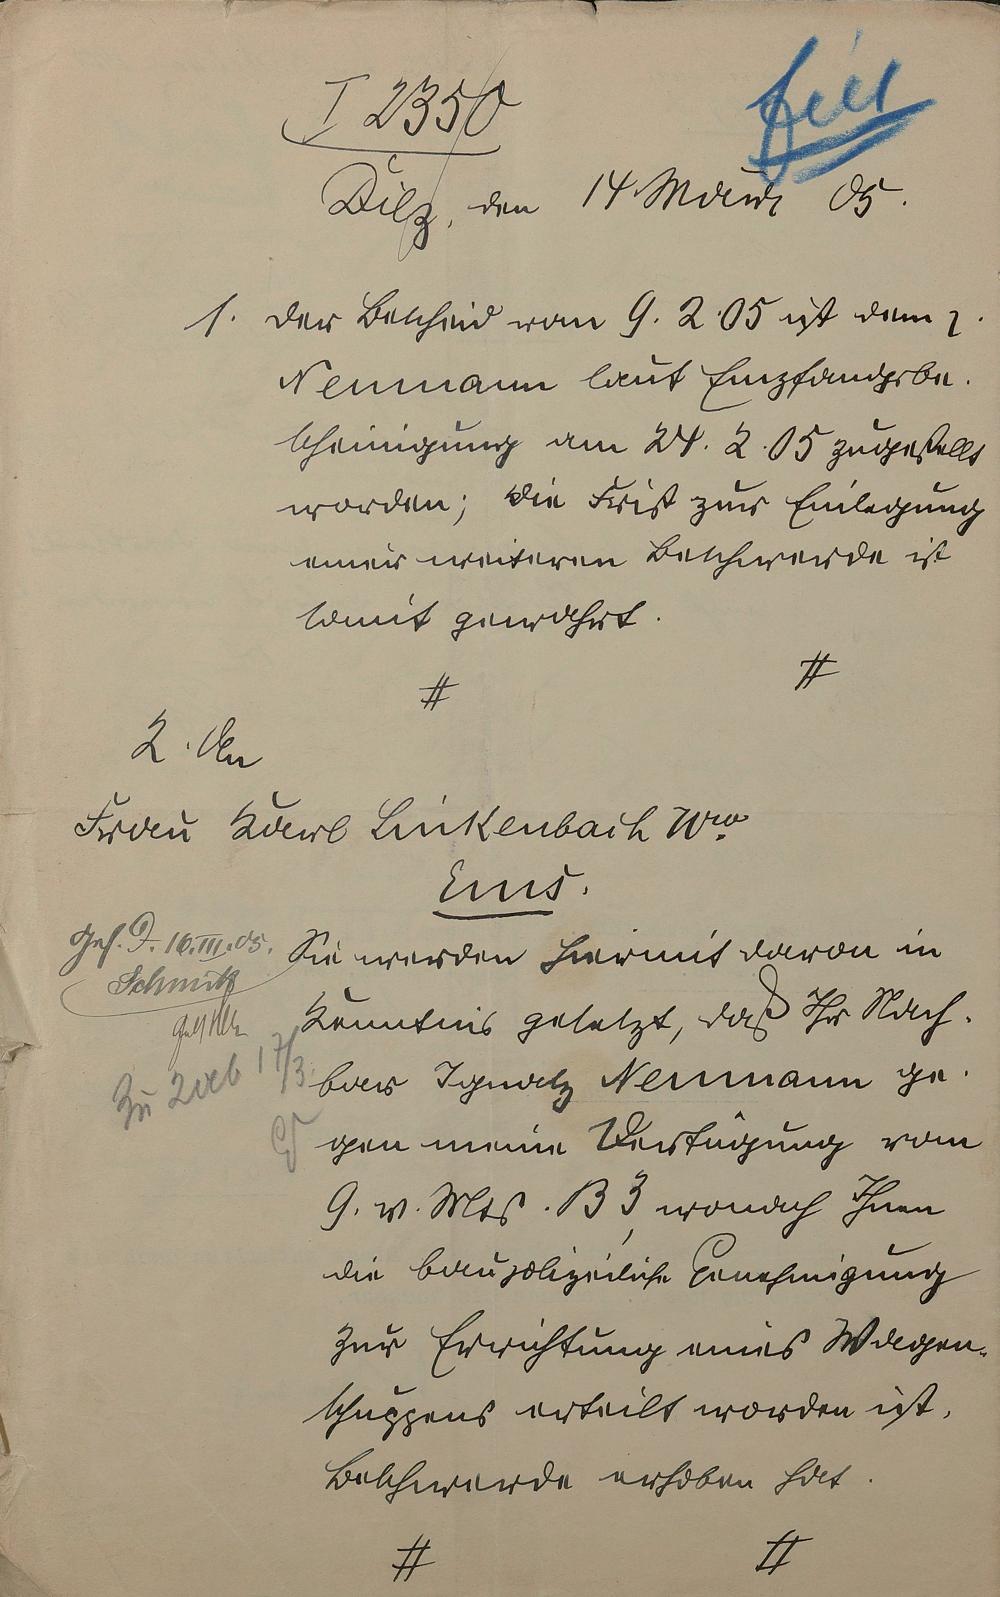 I 2350
Diez, den 14 März 05.
1. Der Bescheid vom 9. 2. 05 ist dem p.
Neumann laut Empfangsbe-
scheinigung am 24. 2. 05 zugestellt
worden; die Frist zur Einlegung
einer weiteren Beschwerde ist
somit gewahrt.
# #
2. An
Frau Karl Linkenbach Wwe
Ems.
Gef. D. 16.III.05.
Schmitz
Sie werden hiermit davon in
Kenntnis gesetzt, daß Ihr Nach-
bar Ignatz Neumann ge-
gen meine Verfügung vom
9. v. Mts. B 3, wonach Ihnen
die baupolizeiliche Genehmigung
zur Errichtung eines Wagen-
schuppens erteilt worden ist,
Beschwerde erhoben hat.
# #
Zu 2 ab 17/3.